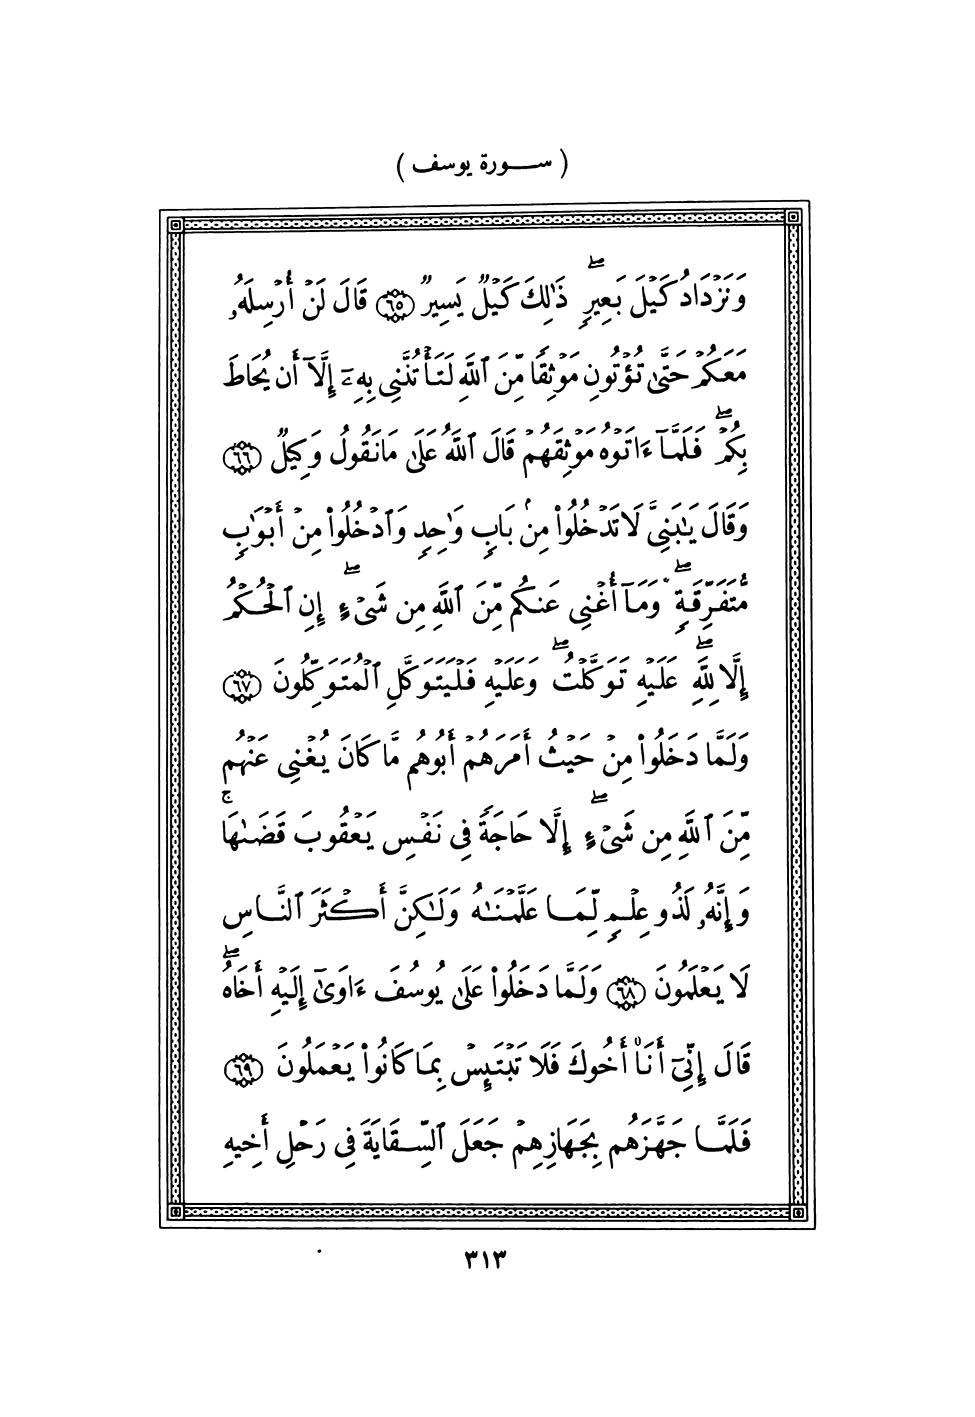 ( ســورة يوسف )
وَنَزْدَادُ كَيْلَ بَعِيرٍۖ ذَٰلِكَ كَيْلٌ يَسِيرٌ ٦٥ قَالَ لَنْ أُرْسِلَهُۥ
مَعَكُمْ حَتَّىٰ تُؤْتُونِ مَوْثِقًا مِّنَ ٱللَّهِ لَتَأْتُنَّنِى بِهِۦٓ إِلَّآ أَن يُحَاطَ
بِكُمْۖ فَلَمَّآ ءَاتَوْهُ مَوْثِقَهُمْ قَالَ ٱللَّهُ عَلَىٰ مَا نَقُولُ وَكِيلٌ ٦٦
وَقَالَ يَٰبَنِىَّ لَا تَدْخُلُوا۟ مِنۢ بَابٍ وَٰحِدٍ وَٱدْخُلُوا۟ مِنْ أَبْوَٰبٍ
مُّتَفَرِّقَةٍۖ وَمَآ أُغْنِى عَنكُم مِّنَ ٱللَّهِ مِن شَىْءٍۖ إِنِ ٱلْحُكْمُ
إِلَّا لِلَّهِۖ عَلَيْهِ تَوَكَّلْتُۖ وَعَلَيْهِ فَلْيَتَوَكَّلِ ٱلْمُتَوَكِّلُونَ ٦٧
وَلَمَّا دَخَلُوا۟ مِنْ حَيْثُ أَمَرَهُمْ أَبُوهُم مَّا كَانَ يُغْنِى عَنْهُم
مِّنَ ٱللَّهِ مِن شَىْءٍۖ إِلَّا حَاجَةً فِى نَفْسِ يَعْقُوبَ قَضَىٰهَاۚ
وَإِنَّهُۥ لَذُو عِلْمٍ لِّمَا عَلَّمْنَٰهُ وَلَٰكِنَّ أَكْثَرَ ٱلنَّاسِ
لَا يَعْلَمُونَ ٦٨ وَلَمَّا دَخَلُوا۟ عَلَىٰ يُوسُفَ ءَاوَىٰٓ إِلَيْهِ أَخَاهُۖ
قَالَ إِنِّىٓ أَنَا۠ أَخُوكَ فَلَا تَبْتَئِسْ بِمَا كَانُوا۟ يَعْمَلُونَ ٦٩
فَلَمَّا جَهَّزَهُم بِجَهَازِهِمْ جَعَلَ ٱلسِّقَايَةَ فِى رَحْلِ أَخِيهِ
٣١٣